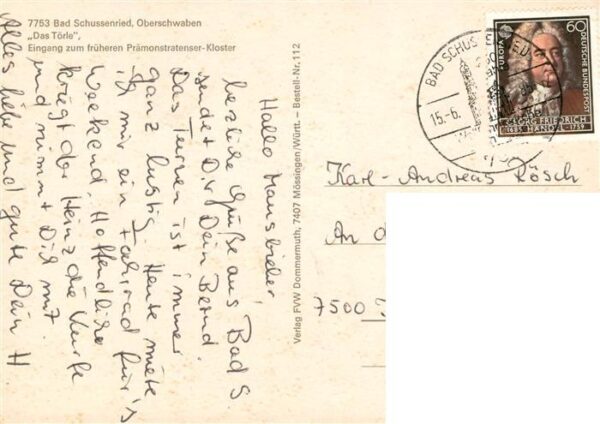 7753 Bad Schussenried, Oberschwaben
„Das Törle",
Eingang zum früheren Prämonstratenser-Kloster
Hallo Hausbieber,
herzliche Grüße aus Bad S.
sendet Dir Dein Bernd.
Das Turnen ist immer
ganz lustig. Heute miete
ich mir ein Fahrrad für's
Weekend. Hoffentliche
kriegt der Heinz die Kurfe
und nimmt Dich mit.
Alles liebe und gute Dein H
Verlag FVW Dommermuth, 7407 Mössingen/Württ. – Bestell-Nr. 112
BAD SCHUS
15.-6.
EUROPA
60
DEUTSCHE BUNDESPOST
GEORG FRIEDRICH
1685 HÄNDEL 1759
Karl-Andreas Rösch
An d
7500